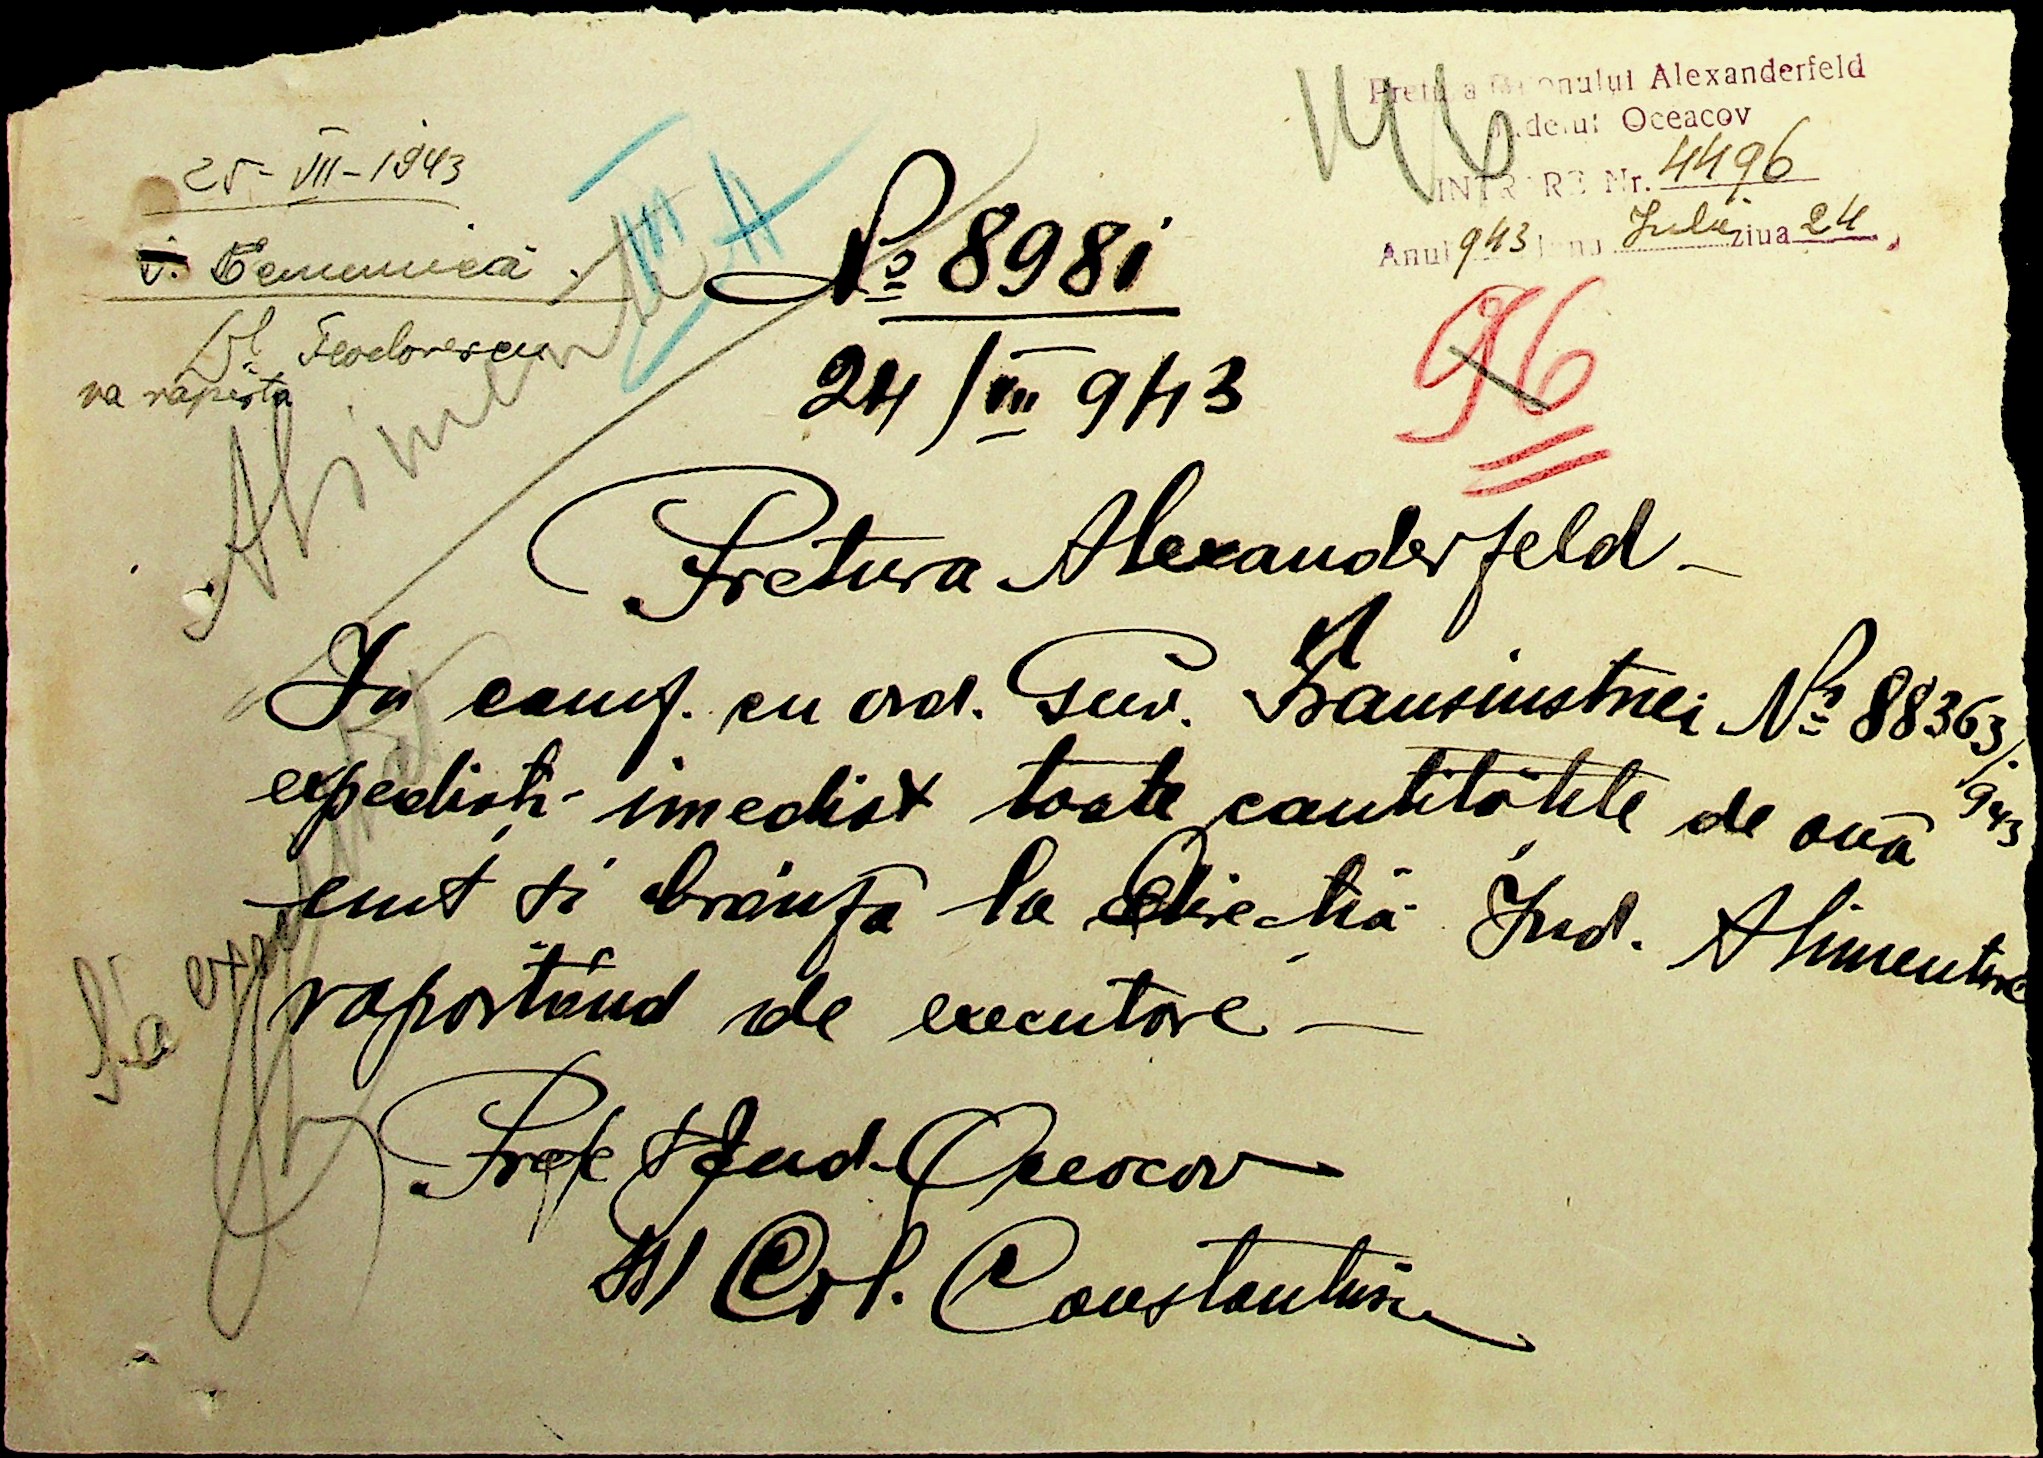 Pretura Raionului Alexanderfeld
Judetul Oceacov
INTRARE Nr. 4496
Anul 943 luna Iulie ziua 24
25-VII-1943
Comunică
Teodorescu
va raporta
Alimentare
III A
No 8981
24/VII 943
96
Pretura Alexanderfeld -
In conf. cu ord. Guv. Transnistriei No 88363/943
expediati imediat toate cantitătile de ouă
unt si brânză la Directia Ind. Alimentare
raportând de executare -
Prefect Jud. Oceacov
Col. Constantinescu